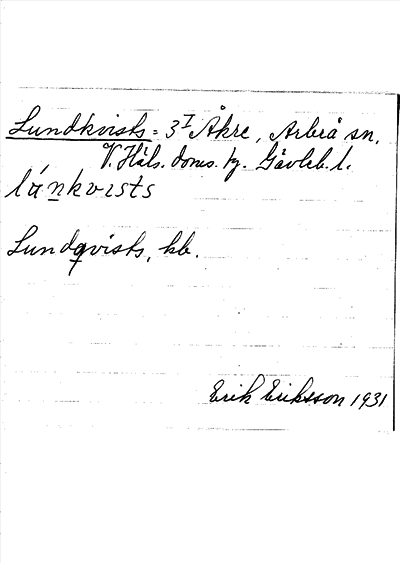 Lundkvists = 3^I Åkre, Arbrå sn,
V. Häls. doms. tg. Gävleb. l.
lánkvısts
Lundqvists, kb.
Erik Eriksson 1931